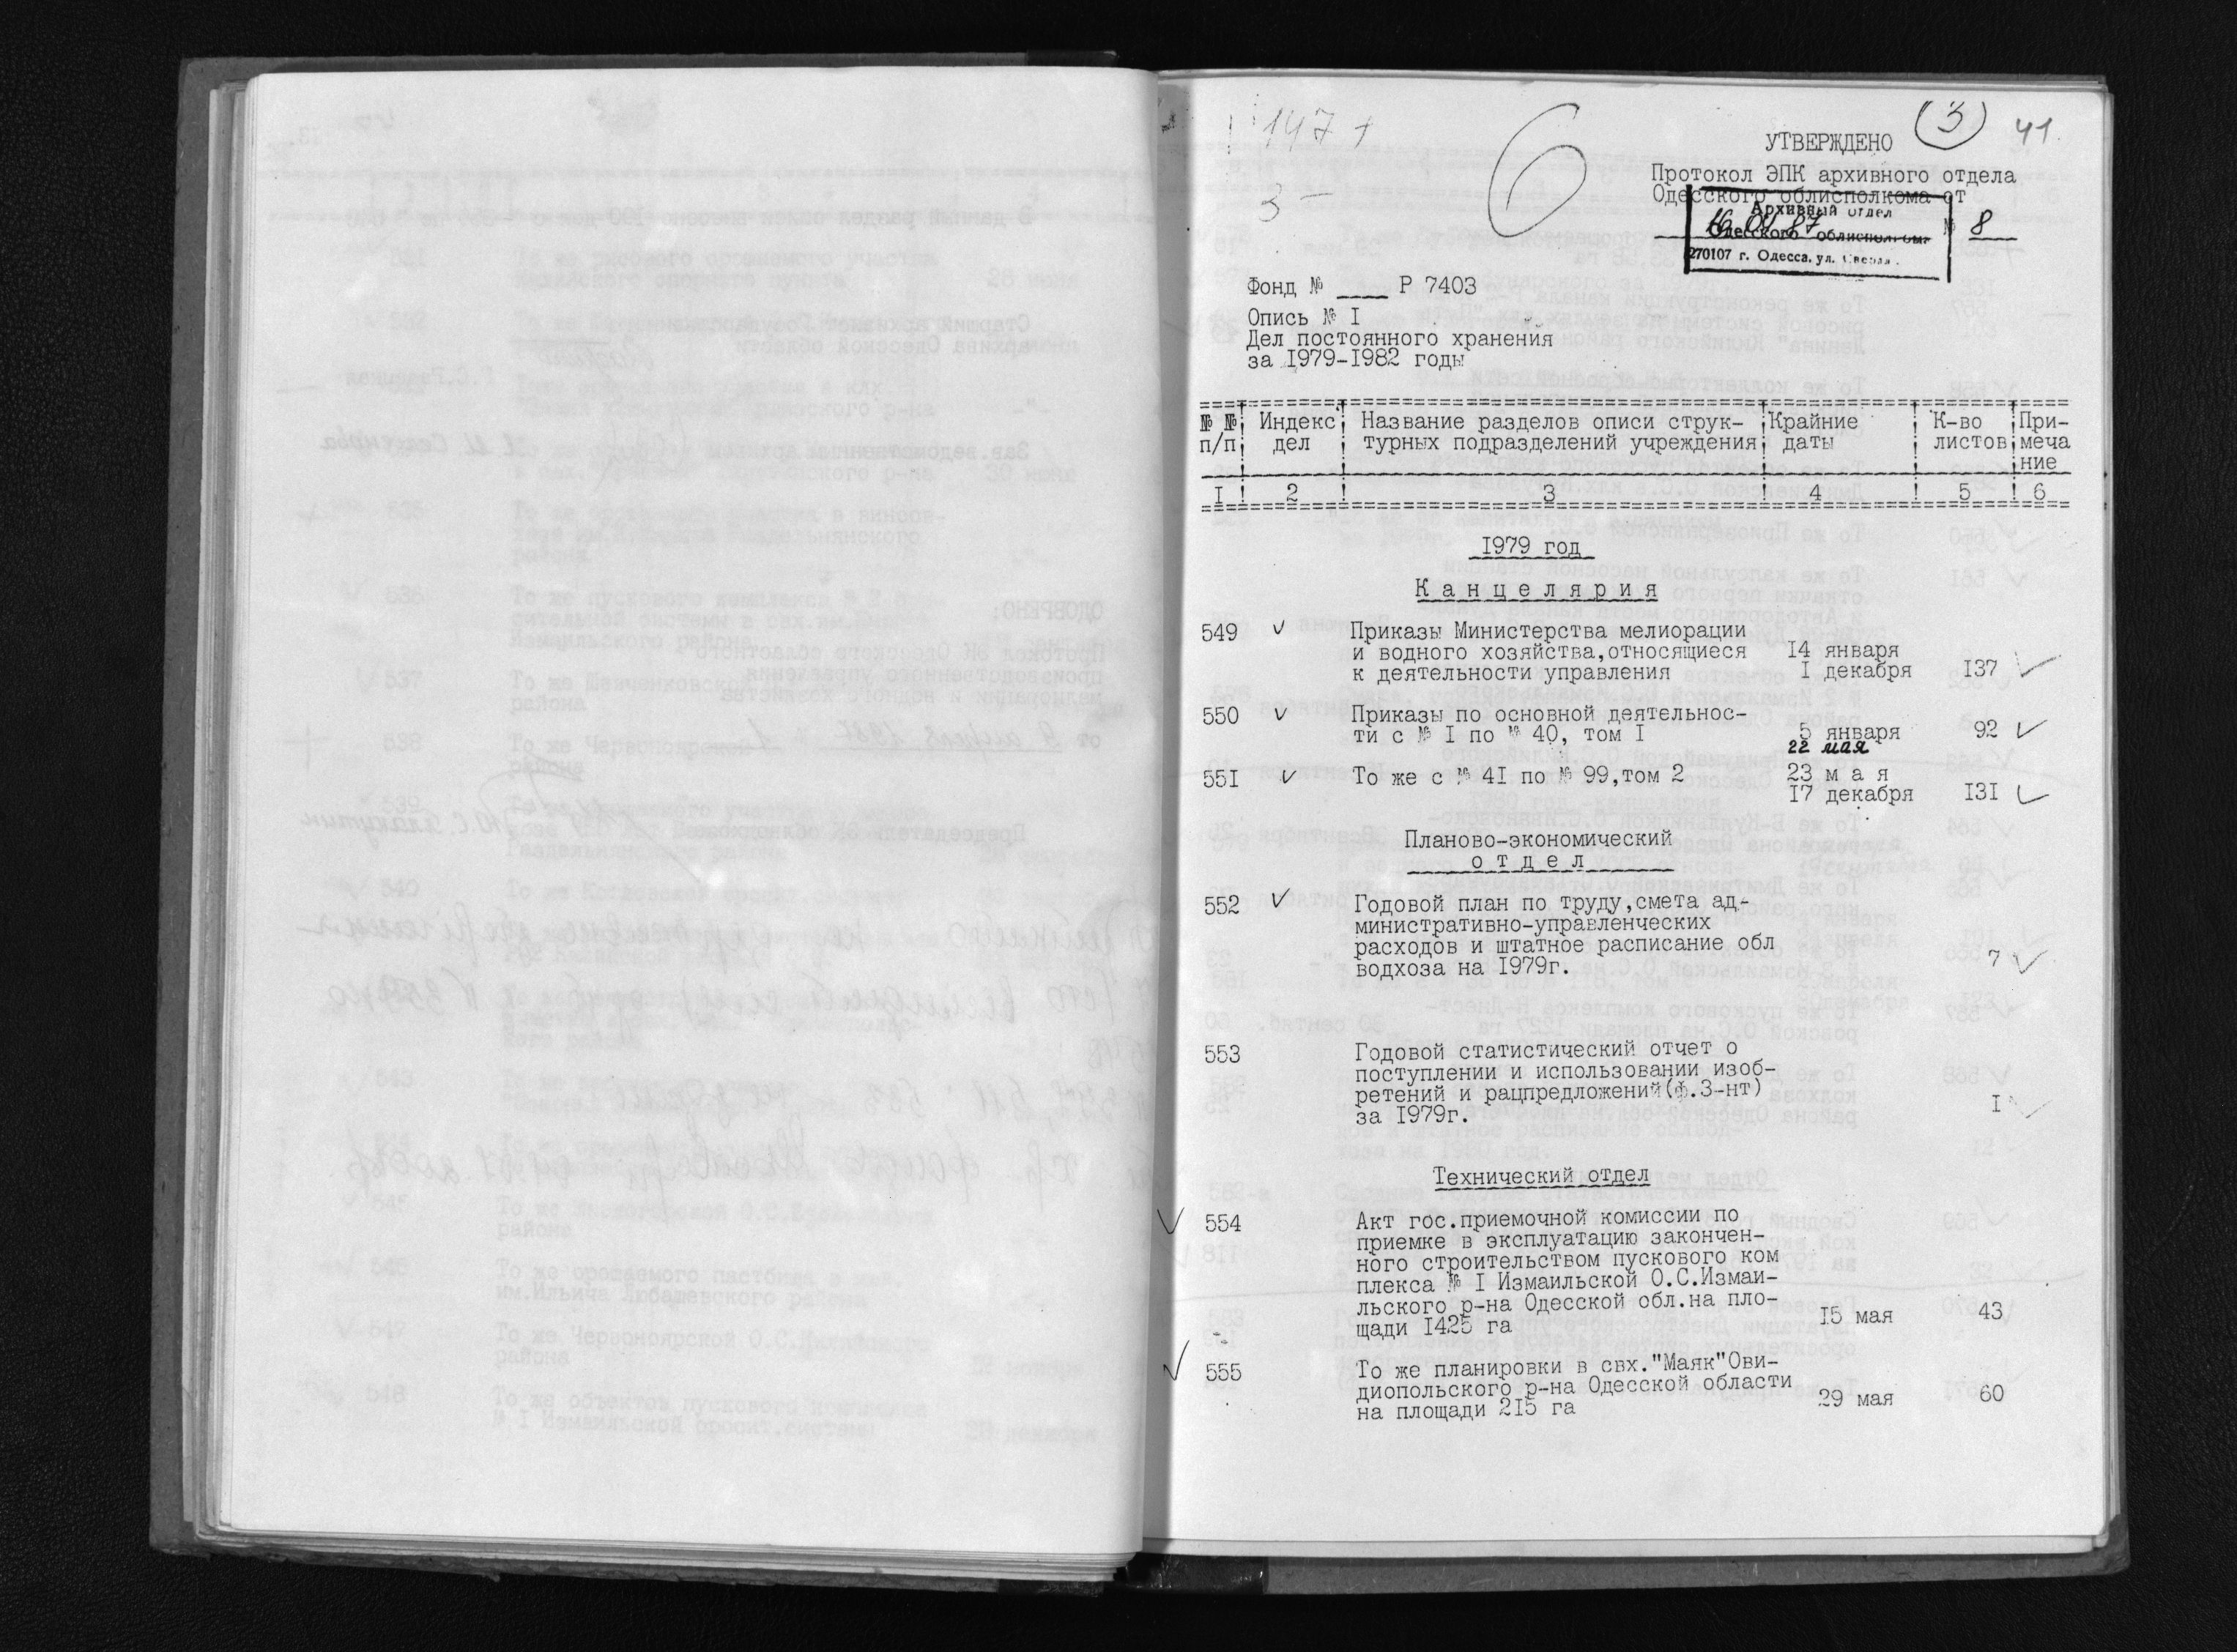 147
3 —
6
(3) 41.
УТВЕРЖДЕНО
Протокол ЭПК архивного отдела
Одесского облисполкома от
Архивный отдел
Одесского облисполкома
№ 8
270107 г. Одесса, ул.
Фонд № ____ Р 7403
Опись № I
Дел постоянного хранения
за I979-I982 годы
№ № п/п ! Индекс дел ! Название разделов описи струк-турных подразделений учреждения ! Крайние даты ! К-во листов ! При-меча ние
I ! 2 ! 3 ! 4 ! 5 ! 6
I979 год
К а н ц е л я р и я
549 ✓ Приказы Министерства мелиорации
и водного хозяйства,относящиеся I4 января
к деятельности управления I декабря I37 ✓
550 ✓ Приказы по основной деятельнос-
ти с № I по № 40, том I 5 января 92 ✓
22 мая
55I ✓ То же с № 4I по № 99,том 2 23 м а я
I7 декабря I3I ✓
Планово-экономический
о т д е л
552 ✓ Годовой план по труду,смета ад-
министративно-управленческих
расходов и штатное расписание обл
водхоза на I979г. 7 ✓
553 Годовой статистический отчет о
поступлении и использовании изоб-
ретений и рацпредложений(ф.3-нт)
за I979г. I ✓
Технический отдел
✓ 554 Акт гос.приемочной комиссии по
приемке в эксплуатацию закончен-
ного строительством пускового ком
плекса № I Измаильской О.С.Измаи-
льского р-на Одесской обл.на пло-
щади I425 га I5 мая 43
✓ 555 То же планировки в свх."Маяк"Ови-
диопольского р-на Одесской области
на площади 2I5 га 29 мая 60